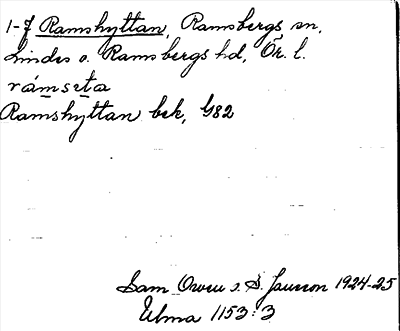 1-7 Ramshyttan, Ramsbergs sn,
Lindes o. Ramsbergs hd, Ör. l.
rámseta
Ramshyttan bek, G82
Sam Owen o. S. Jansson 1924-25
Ulma 1153:3